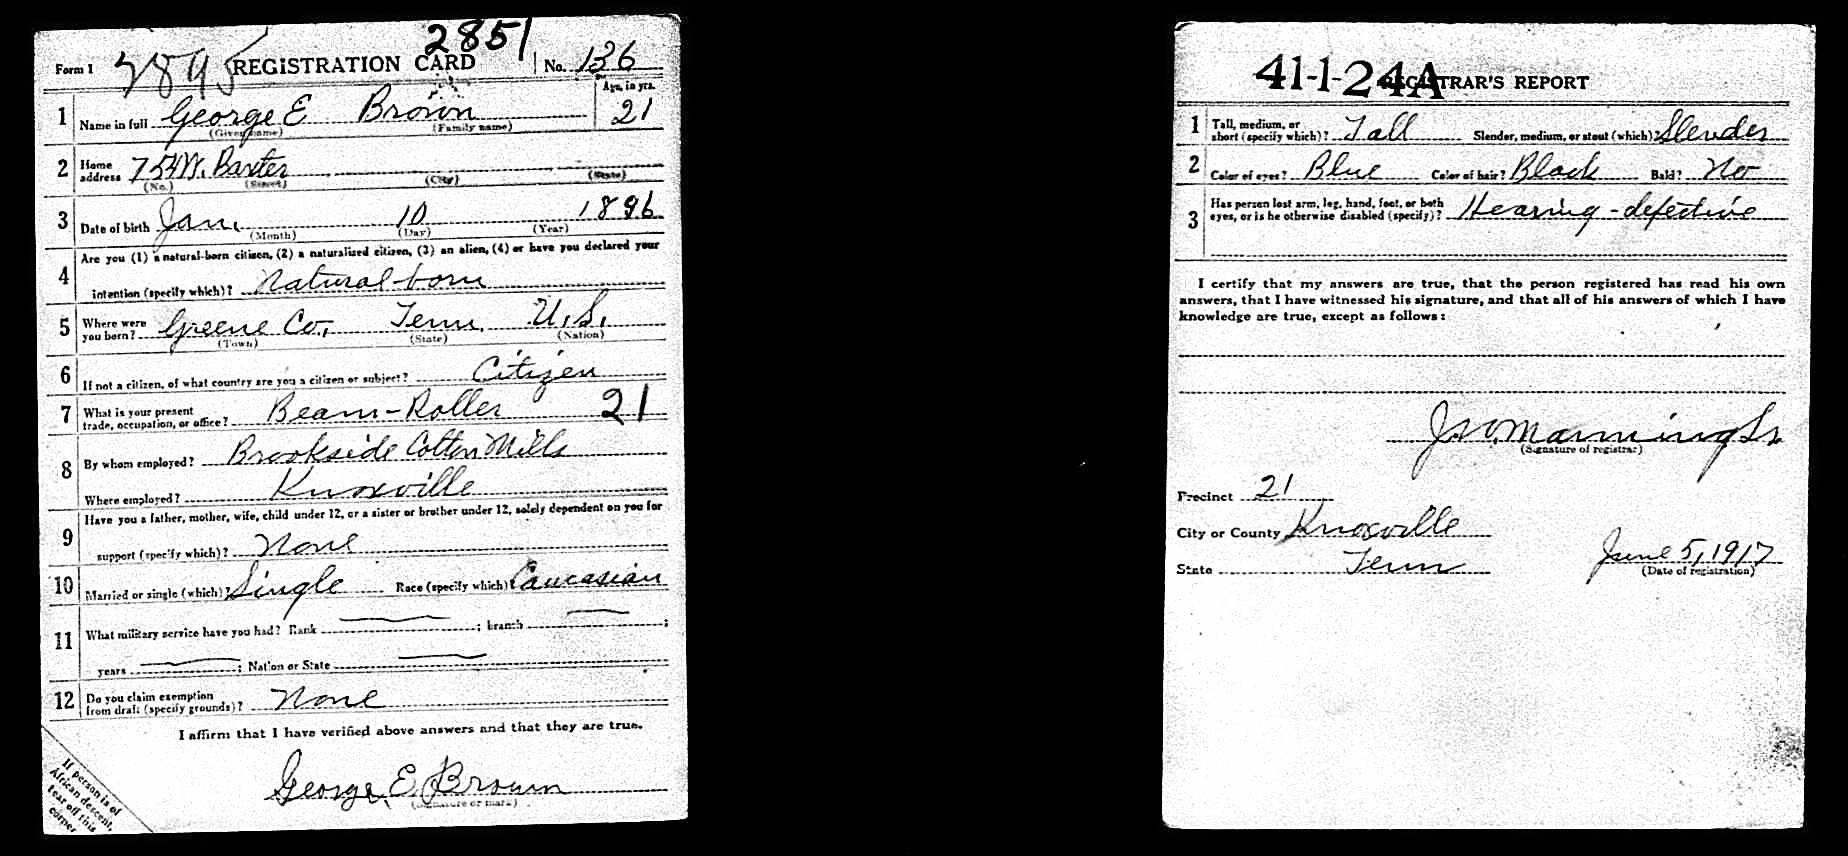 2851
Form 1 2895 REGISTRATION CARD No. 136
Age, in yrs.
1 Name in full George E Brown 21
(Given name) (Family name)
2 Home address 754 W. Baxter
(No.) (Street) (City) (State)
3 Date of birth Jan. 10 1896
(Month) (Day) (Year)
Are you (1) a natural-born citizen, (2) a naturalized citizen, (3) an alien, (4) or have you declared your
4 intention (specify which)? Natural born
5 Where were you born? Greene Co., Tenn. U.S.
(Town) (State) (Nation)
6 If not a citizen, of what country are you a citizen or subject? Citizen
7 What is your present trade, occupation, or office? Beam-Roller 21
8 By whom employed? Brookside Cotton Mills
Where employed? Knoxville
Have you a father, mother, wife, child under 12, or a sister or brother under 12, solely dependent on you for
9 support (specify which)? None
10 Married or single (which)? Single Race (specify which)? Caucasian
11 What military service have you had? Rank ; branch ;
years ; Nation or State
12 Do you claim exemption from draft (specify grounds)? None
I affirm that I have verified above answers and that they are true.
George E. Brown
(Signature or mark)
If person is of
African descent,
tear off this
corner
41-1-24A
REGISTRAR'S REPORT
1 Tall, medium, or short (specify which)? Tall Slender, medium, or stout (which)? Slender
2 Color of eyes? Blue Color of hair? Black Bald? No
3 Has person lost arm, leg, hand, foot, or both eyes, or is he otherwise disabled (specify)? Hearing-defective
I certify that my answers are true, that the person registered has read his own
answers, that I have witnessed his signature, and that all of his answers of which I have
knowledge are true, except as follows:
Jno. Manning Sr.
(Signature of registrar)
Precinct 21
City or County Knoxville
State Tenn June 5, 1917
(Date of registration)